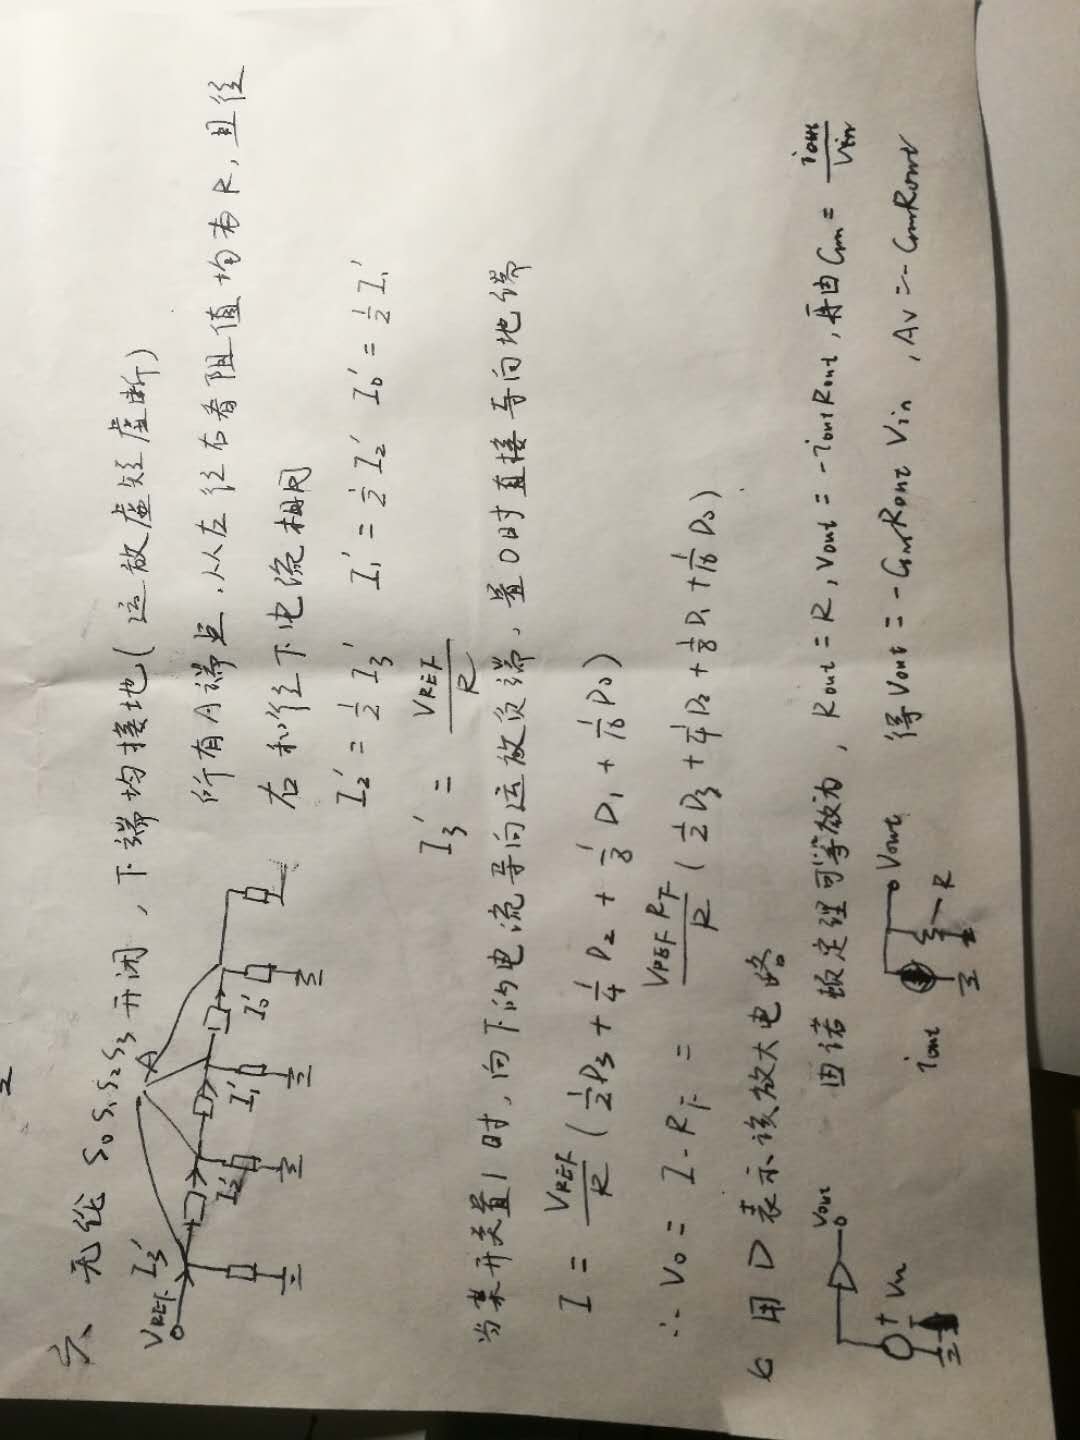 六 无论 S₀ S₁ S₂ S₃ 开闭，下端均接地（运放虚短虚断）
V_REF I₃' A
I₂' I₁' I₀'
所有A端点，从左往右看阻值均为R，且往
右和往下电流相同
I₂' = 1/2 I₃' I₁' = 1/2 I₂' I₀' = 1/2 I₁'
I₃' = V_REF/R
当某开关置1时，向下的电流导向运放负端，置0时直接导向地端
I = V_REF/R (1/2 D₃ + 1/4 D₂ + 1/8 D₁ + 1/16 D₀)
∴ V₀ = I·R_F = V_REF R_F/R (1/2 D₃ + 1/4 D₂ + 1/8 D₁ + 1/16 D₀)
七 用 ▷ 表示该放大电路
Vout
+ Vin
由诺顿定理可等效为，Rout = R，Vout = -iout Rout，再由Gm = iout/Vin
iout Vout R
得 Vout = -Gm Rout Vin，Av = -Gm Rout